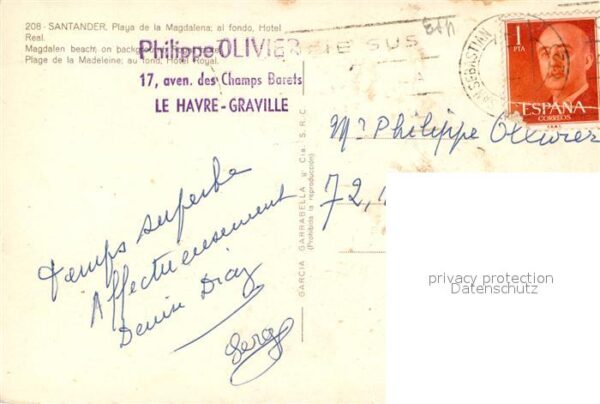 208 - SANTANDER. Playa de la Magdalena; al fondo, Hotel
Real.
Magdalen beach; on background,
Plage de la Madeleine; au fond, Hotel Royal.
Philippe OLIVIER
17, aven. des Champs Barets
LE HAVRE-GRAVILLE
SUS
SEBASTIAN
1
PTA
ESPAÑA
CORREOS
Mr Philippe Ollivier
72,
Temps superbe
Affectueusement
Denise Diaz
Serge
GARCIA GARRABELLA y Cia. S.R.C.
(Prohibida la reproducción)
privacy protection
Datenschutz